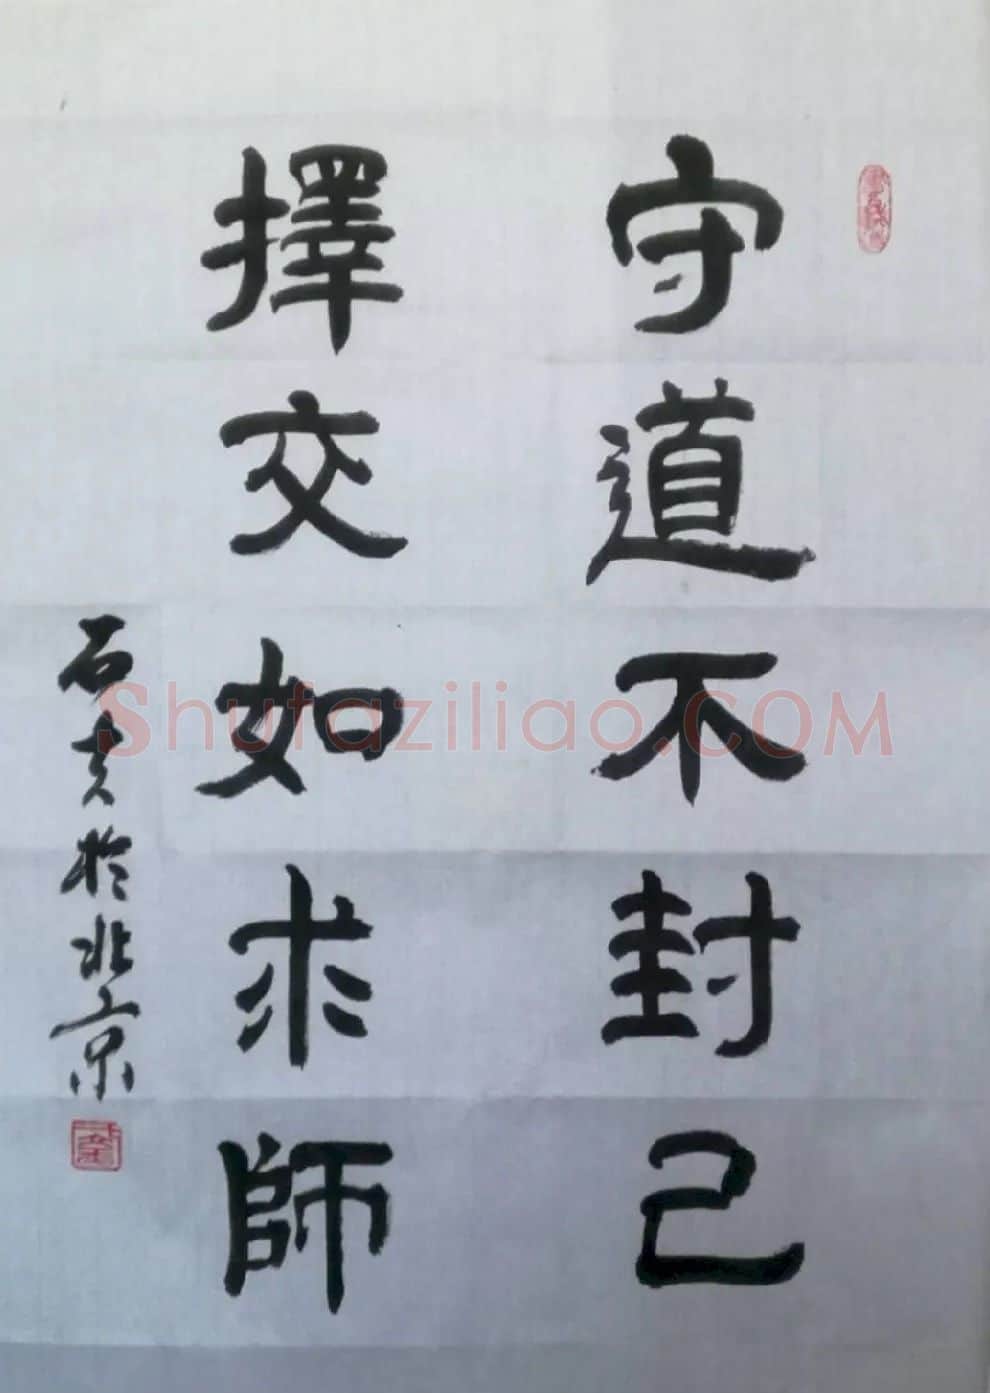 守道不封己
擇交如求師
石夫於北京
Shufaziliao.COM